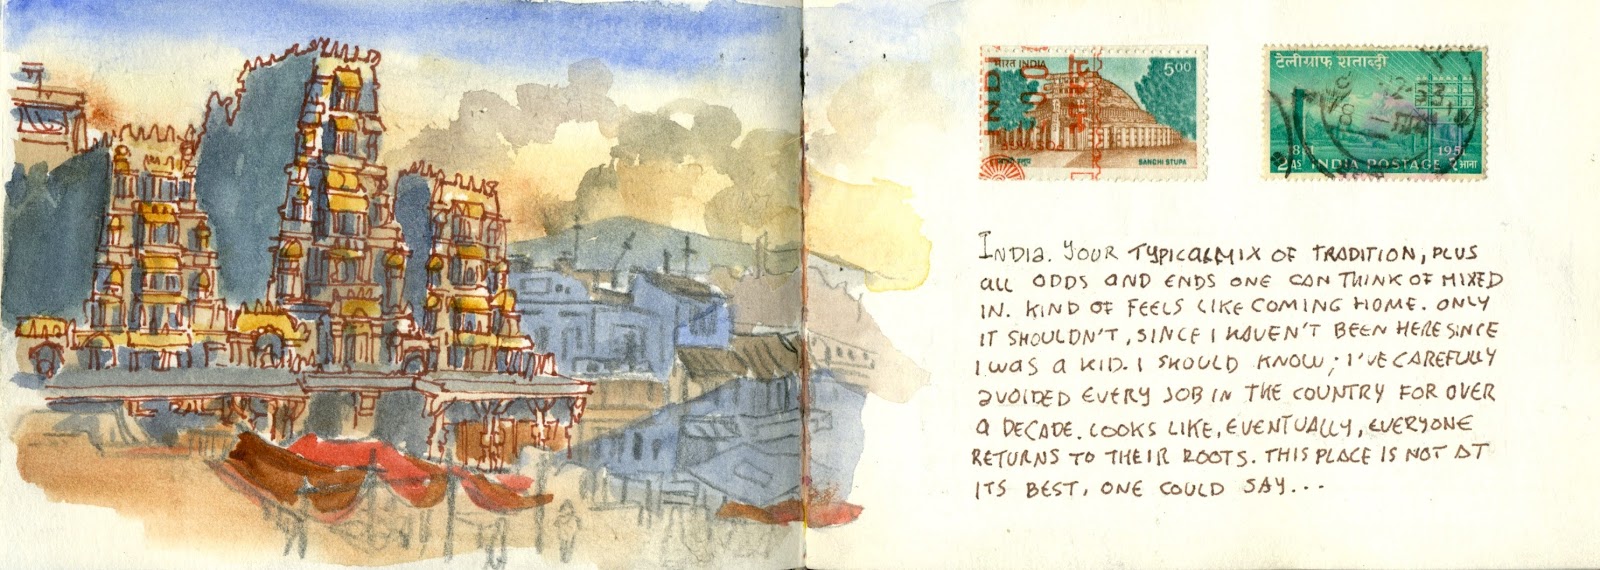 भारत INDIA 500
SANCHI STUPA
टेलीग्राफ शताब्दी
1951
2 AS INDIA POSTAGE २ आना
INDIA. YOUR TYPICAL MIX OF TRADITION, PLUS
ALL ODDS AND ENDS ONE CAN THINK OF MIXED
IN. KIND OF FEELS LIKE COMING HOME. ONLY
IT SHOULDN'T, SINCE I HAVEN'T BEEN HERE SINCE
I WAS A KID. I SHOULD KNOW; I'VE CAREFULLY
AVOIDED EVERY JOB IN THE COUNTRY FOR OVER
A DECADE. LOOKS LIKE, EVENTUALLY, EVERYONE
RETURNS TO THEIR ROOTS. THIS PLACE IS NOT AT
ITS BEST, ONE COULD SAY...